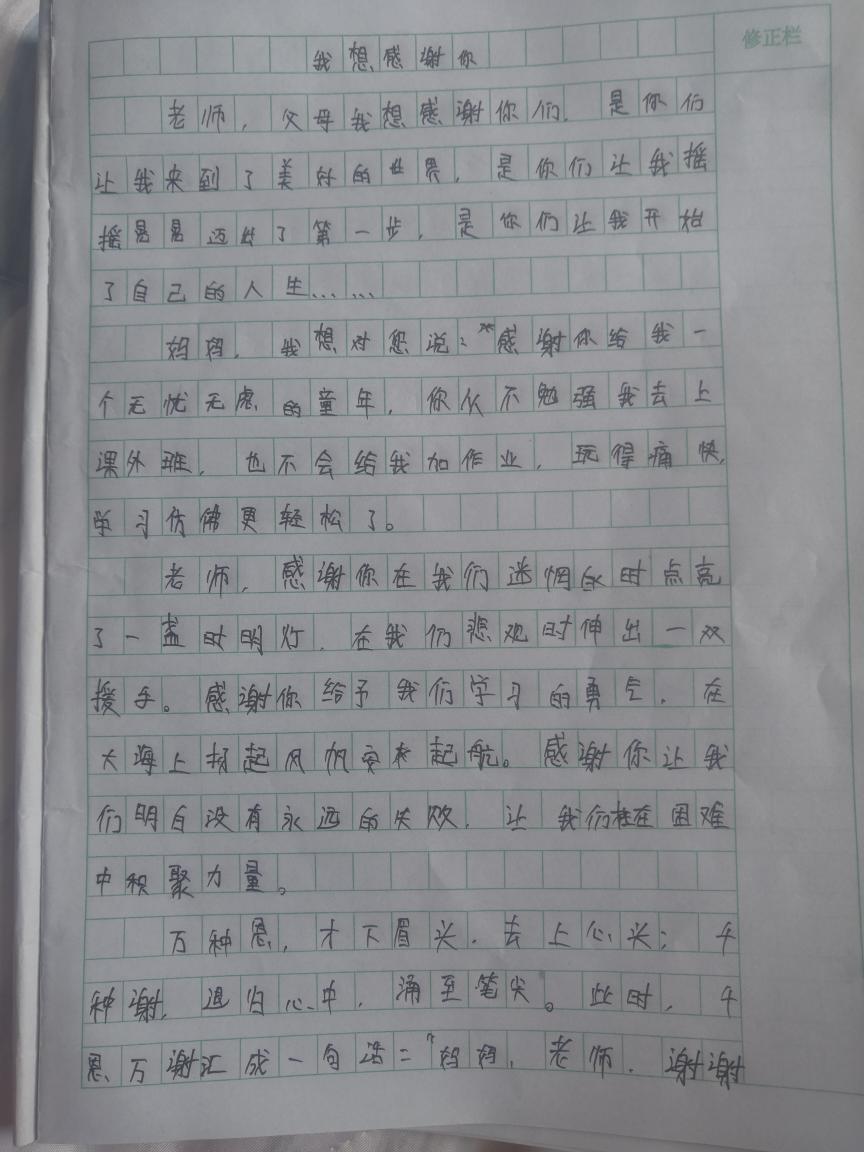 修正栏
我想感谢你
老师，父母我想感谢你们．是你们
让我来到了美好的世界，是你们让我摇
摇晃晃迈出了第一步，是你们让我开始
了自己的人生……
妈妈，我想对您说："感谢你给我一
个无忧无虑的童年，你从不勉强我去上
课外班，也不会给我加作业，玩得痛快，
学习仿佛更轻松了。
老师，感谢你在我们迷惘的时点亮
了一盏时明灯，在我们悲观时伸出一双
援手。感谢你给予我们学习的勇气，在
大海上扬起风帆安起航。感谢你让我
们明白没有永远的失败，让我们在困难
中积聚力量。
万种恩，才下眉头，去上心头；千
种谢，退归心中，涌至笔尖。此时，千
恩万谢汇成一句话："妈妈，老师．谢谢